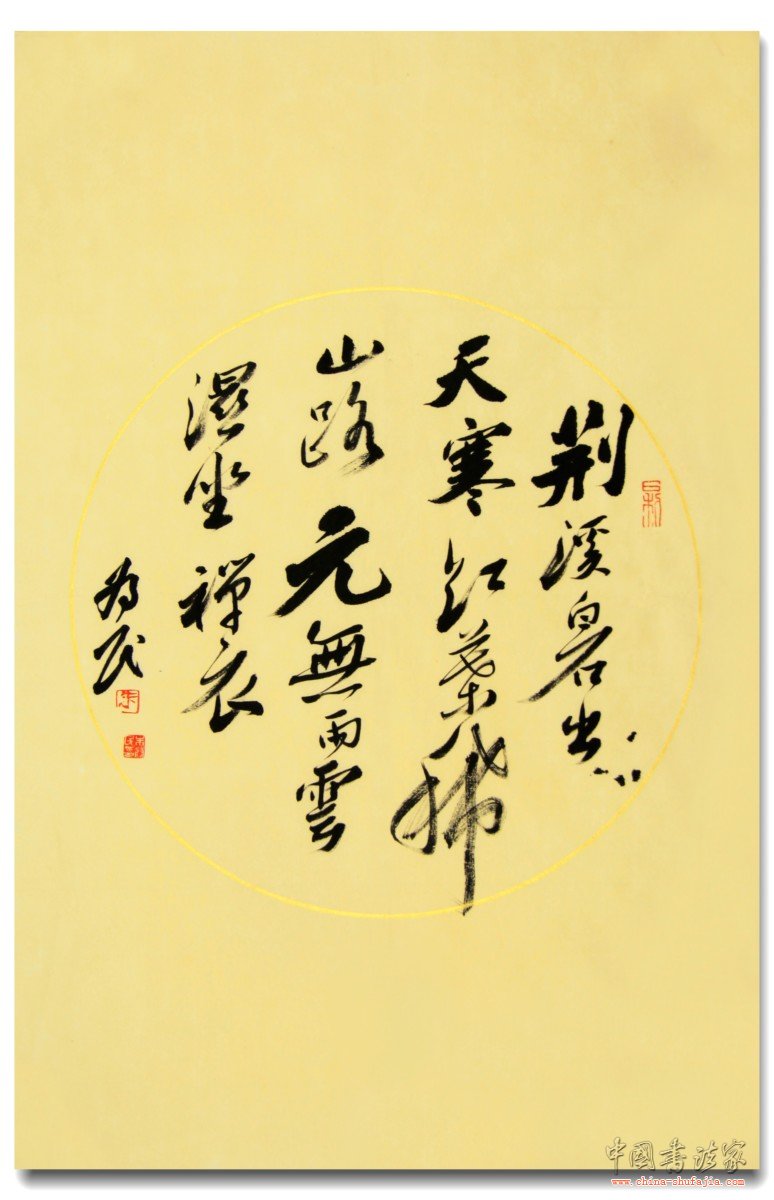 荆溪白石出
天寒紅葉稀
山路元無雨雲
濕坐禅衣
为民
中國書法家
www.china-chufajia.com